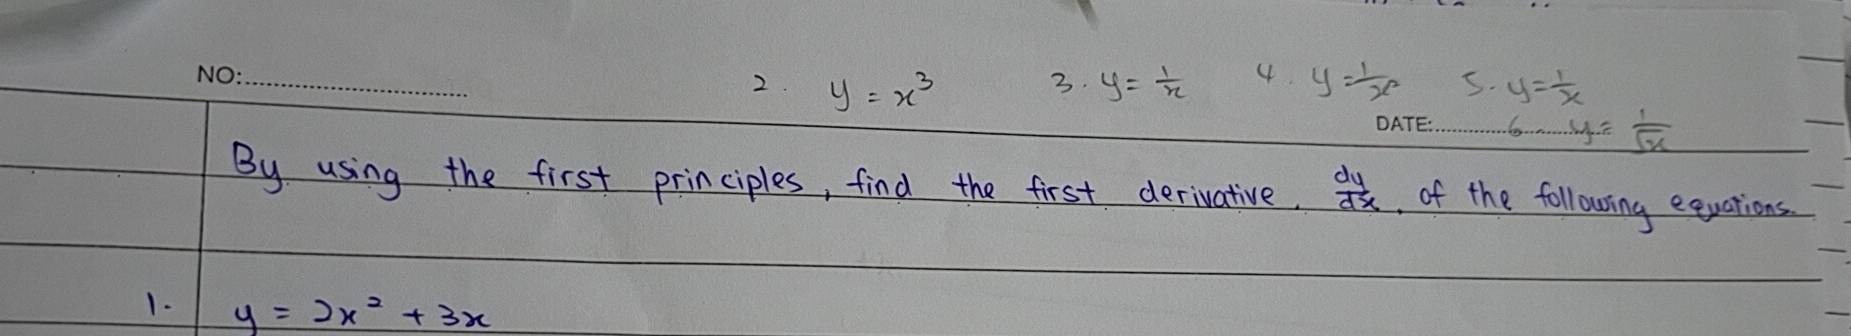 NO:
2. y = x³ 3. y = 1/x 4. y = 1/x² 5. y = 1/x
DATE: 6 y = 1/√x
By using the first principles, find the first derivative, dy/dx, of the following equations.
1. y = 2x² + 3x